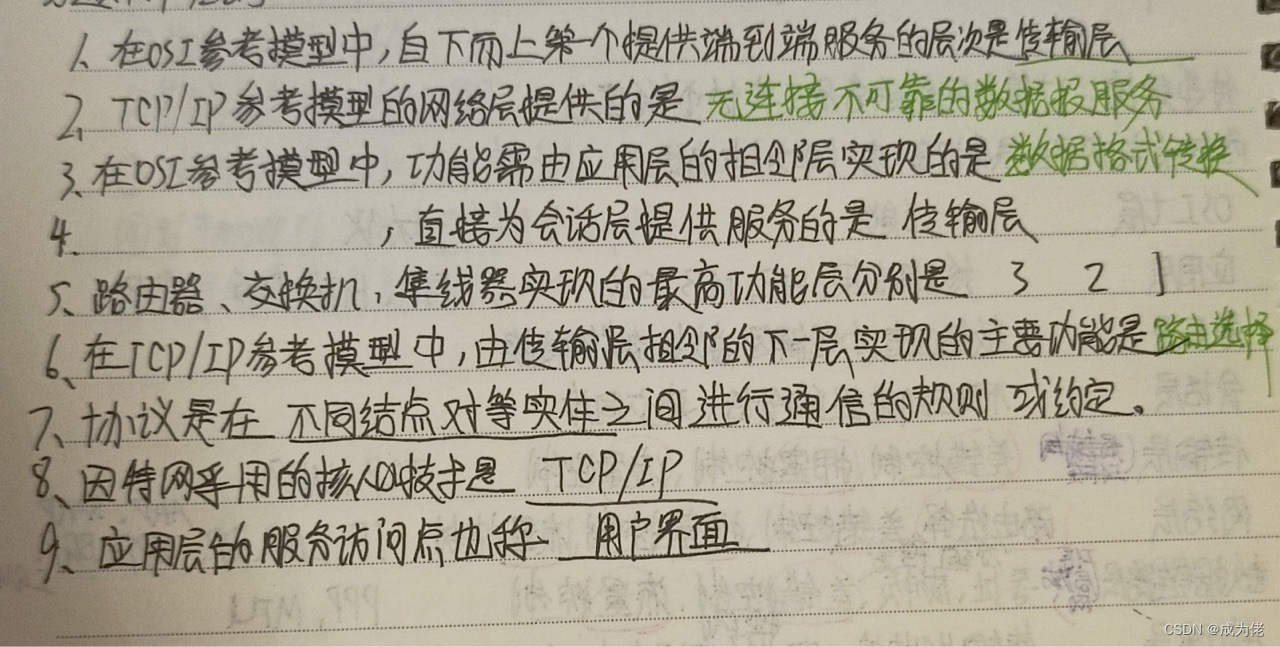 1、在OSI参考模型中,自下而上第一个提供端到端服务的层次是传输层
2、TCP/IP参考模型的网络层提供的是 无连接不可靠的数据报服务
3、在OSI参考模型中,功能需由应用层的相邻层实现的是 数据格式转换
4. ,直接为会话层提供服务的是 传输层
5、路由器、交换机,集线器实现的最高功能层分别是 3 2 1
6、在TCP/IP参考模型中,由传输层相邻的下一层实现的主要功能是路由选择
7、协议是在 不同结点对等实体之间进行通信的规则 或约定。
8、因特网采用的核心技术是 TCP/IP
9、应用层的服务访问点也称 用户界面
CSDN @成为佬